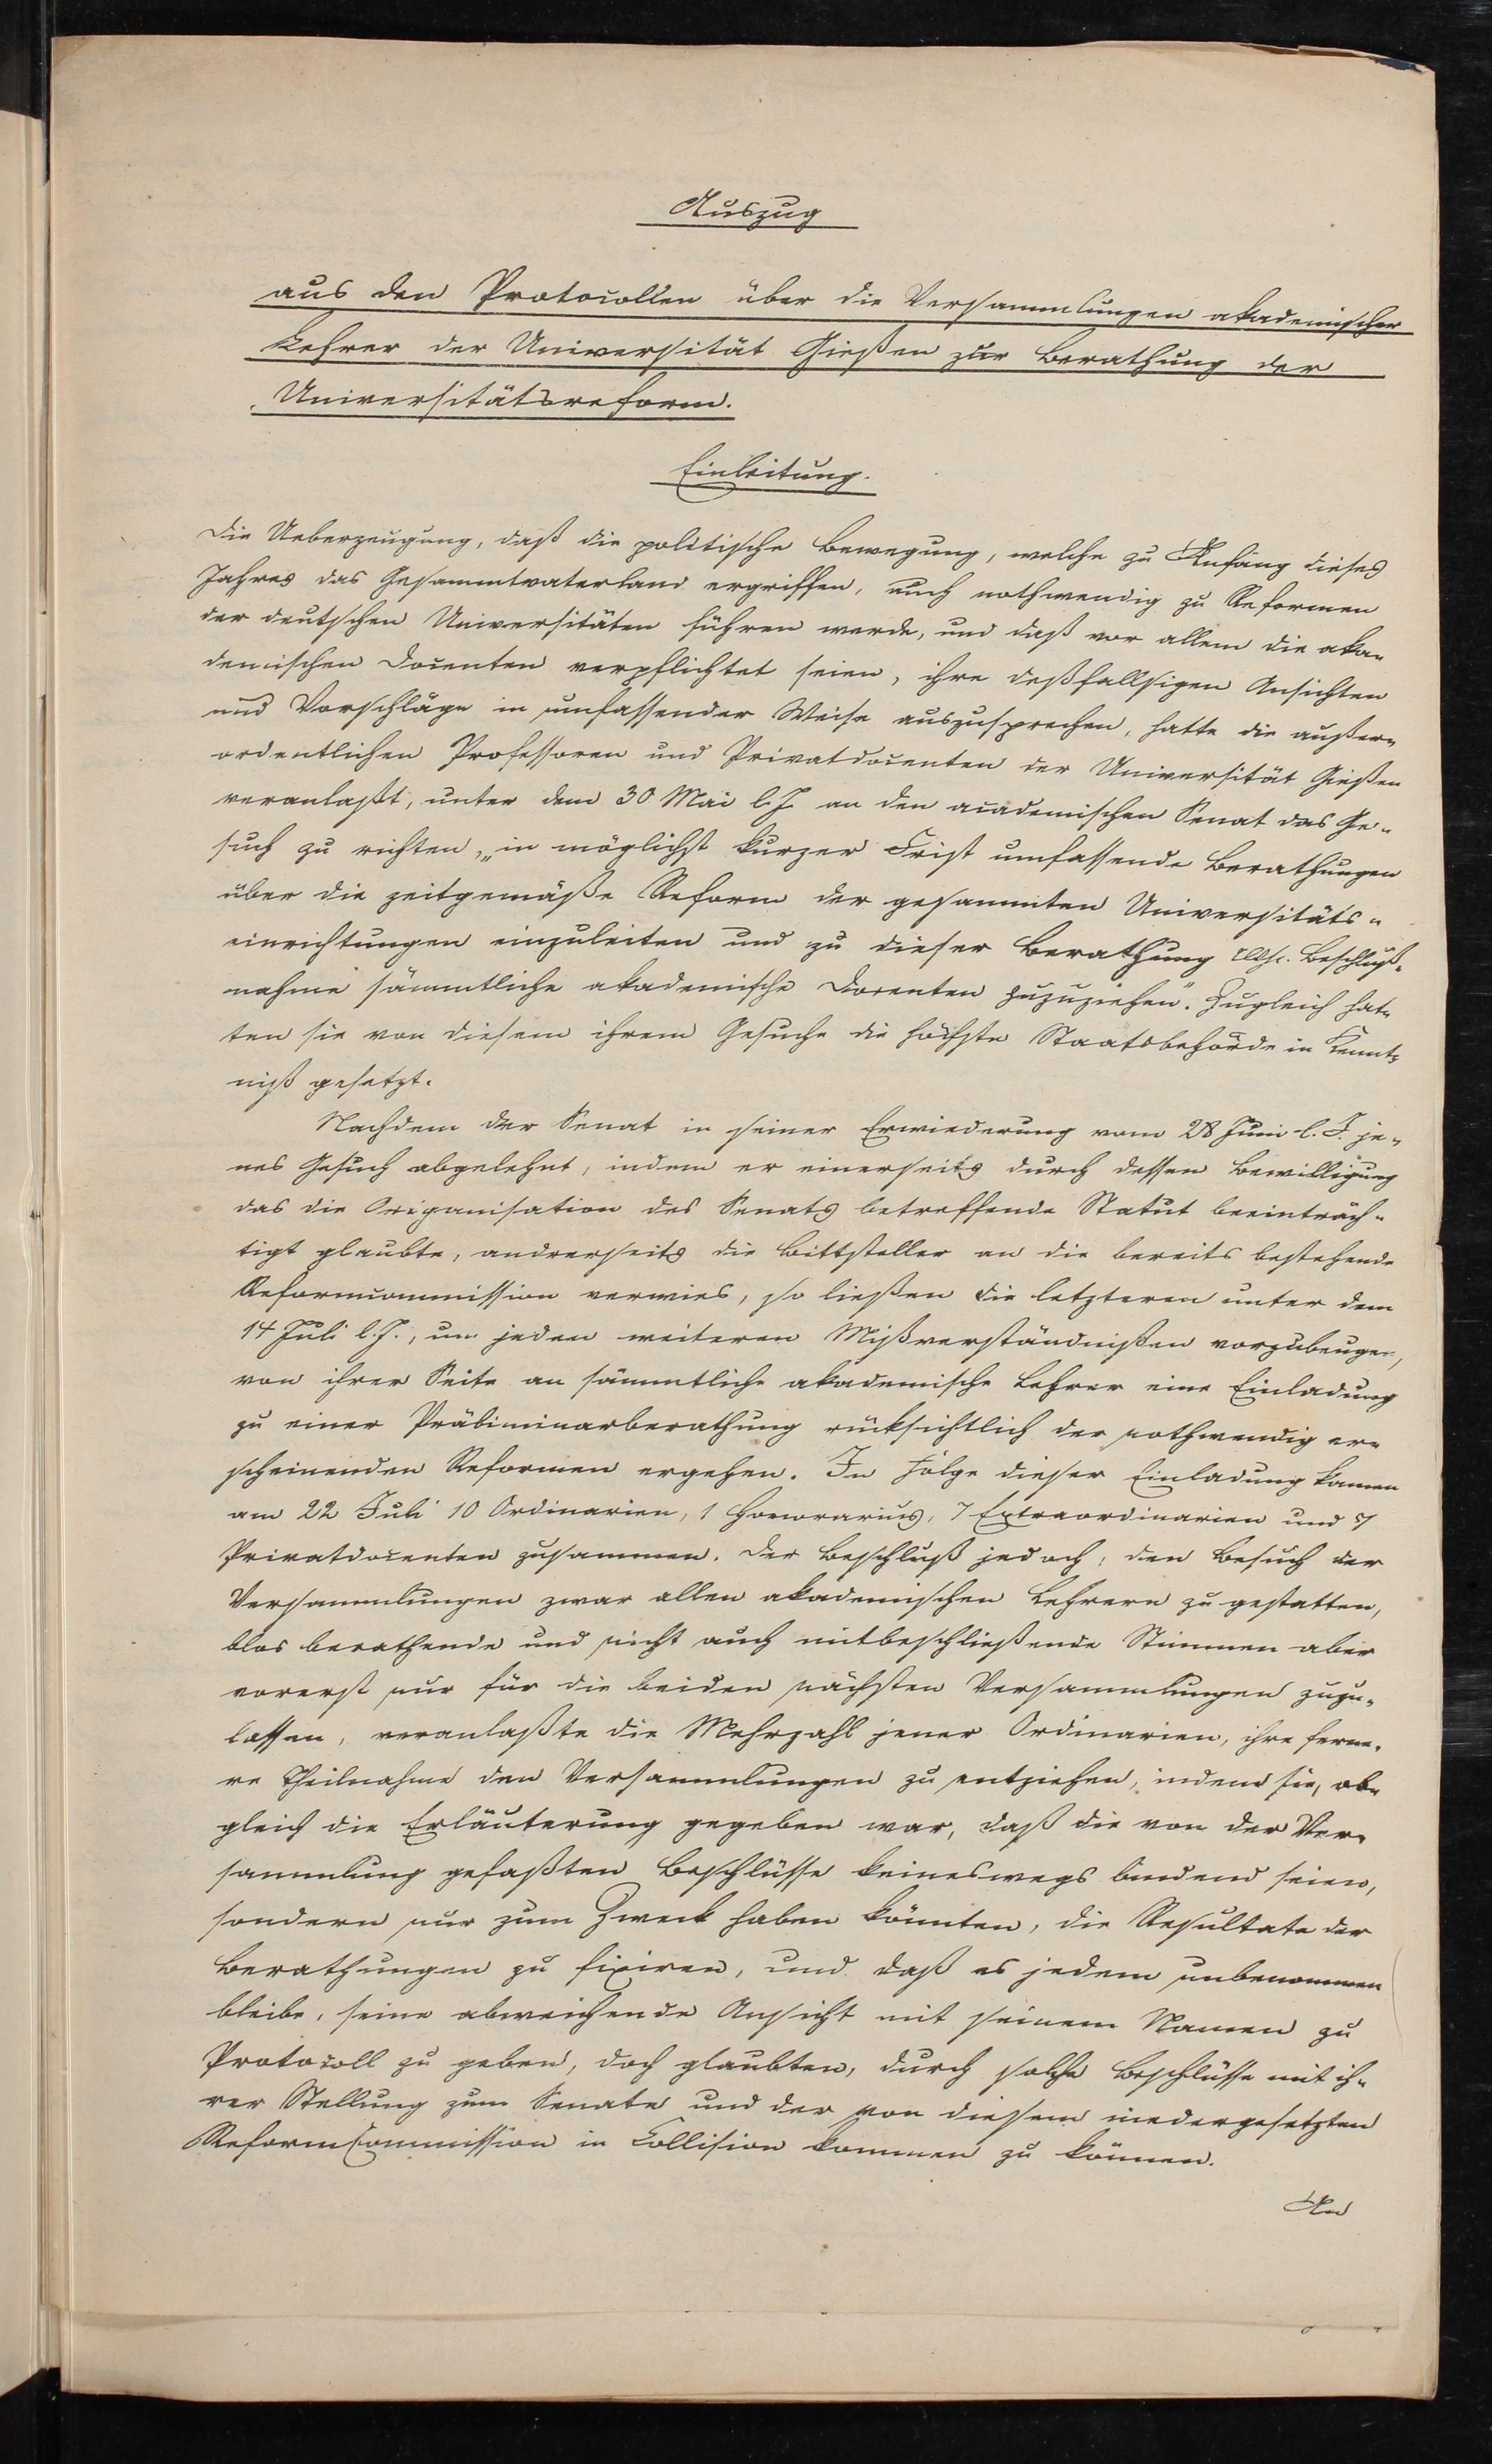 Auszug
aus den Protocollen über die Versammlungen akademischer
Lehrer der Universität Gießen zur Berathung der
Universitätsreform.
Einleitung.
Die Ueberzeugung, daß die politische Bewegung, welche zu Anfang dieses
Jahres das Gesammtvaterland ergriffen, auch nothwendig zu Reformen
der deutschen Universitäten führen werde, und daß vor allem die aka-
demischen Docenten verpflichtet seien, ihre deßfallsigen Ansichten
und Vorschläge in umfassender Weise auszusprechen, hatte die außer-
ordentlichen Professoren und Privatdocenten der Universität Gießen
veranlaßt, unter dem 30 Mai l. J. an den academischen Senat das Ge-
such zu richten, „in möglichst kurzer Frist umfassende Berathungen
über die zeitgemäße Reform der gesammten Universitäts-
einrichtungen einzuleiten und zu dieser Berathung Beschluß-
nahme sämmtliche akademische Docenten zuzuziehen". Zugleich hat-
ten sie von diesem ihrem Gesuche die höchste Staatsbehörde in Kennt-
niß gesetzt.
Nachdem der Senat in seiner Erwiederung vom 28 Juni l. J. je-
nes Gesuch abgelehnt, indem er einerseits durch dessen Bewilligung
das die Organisation des Senats betreffende Statut beeinträch-
tigt glaubte, andrerseits die Bittsteller an die bereits bestehende
Reformcommission verwies, so ließen die letzteren unter dem
14 Juli l. J., um jeden weiteren Mißverständnißen vorzubeugen,
von ihrer Seite an sämmtliche akademische Lehrer eine Einladung
zu einer Präliminarberathung rücksichtlich der nothwendig er-
scheinenden Reformen ergehen. In Folge dieser Einladung kamen
am 22 Juli 10 Ordinarien, 1 Honorarius, 7 Extraordinarien und 7
Privatdocenten zusammen. Der Beschluß jedoch, den Besuch der
Versammlungen zwar allen akademischen Lehrern zu gestatten,
blos berathende und nicht auch mitbeschließende Stimmen aber
vorerst nur für die beiden nächsten Versammlungen zuzu-
lassen, veranlaßte die Mehrzahl jener Ordinarien, ihre ferne-
re Theilnahme den Versammlungen zu entziehen, indem sie, ob-
gleich die Erläuterung gegeben war, daß die von der Ver-
sammlung gefaßten Beschlüsse keineswegs bindend seien,
sondern nur zum Zweck haben könnten, die Resultate der
Berathungen zu fixiren, und daß es jedem unbenommen
bleibe, seine abweichende Ansicht mit seinem Namen zu
Protocoll zu geben, doch glaubten, durch solche Beschlüsse mit ih-
rer Stellung zum Senate und der von diesem niedergesetzten
Reformcommission in Collision kommen zu können.
An